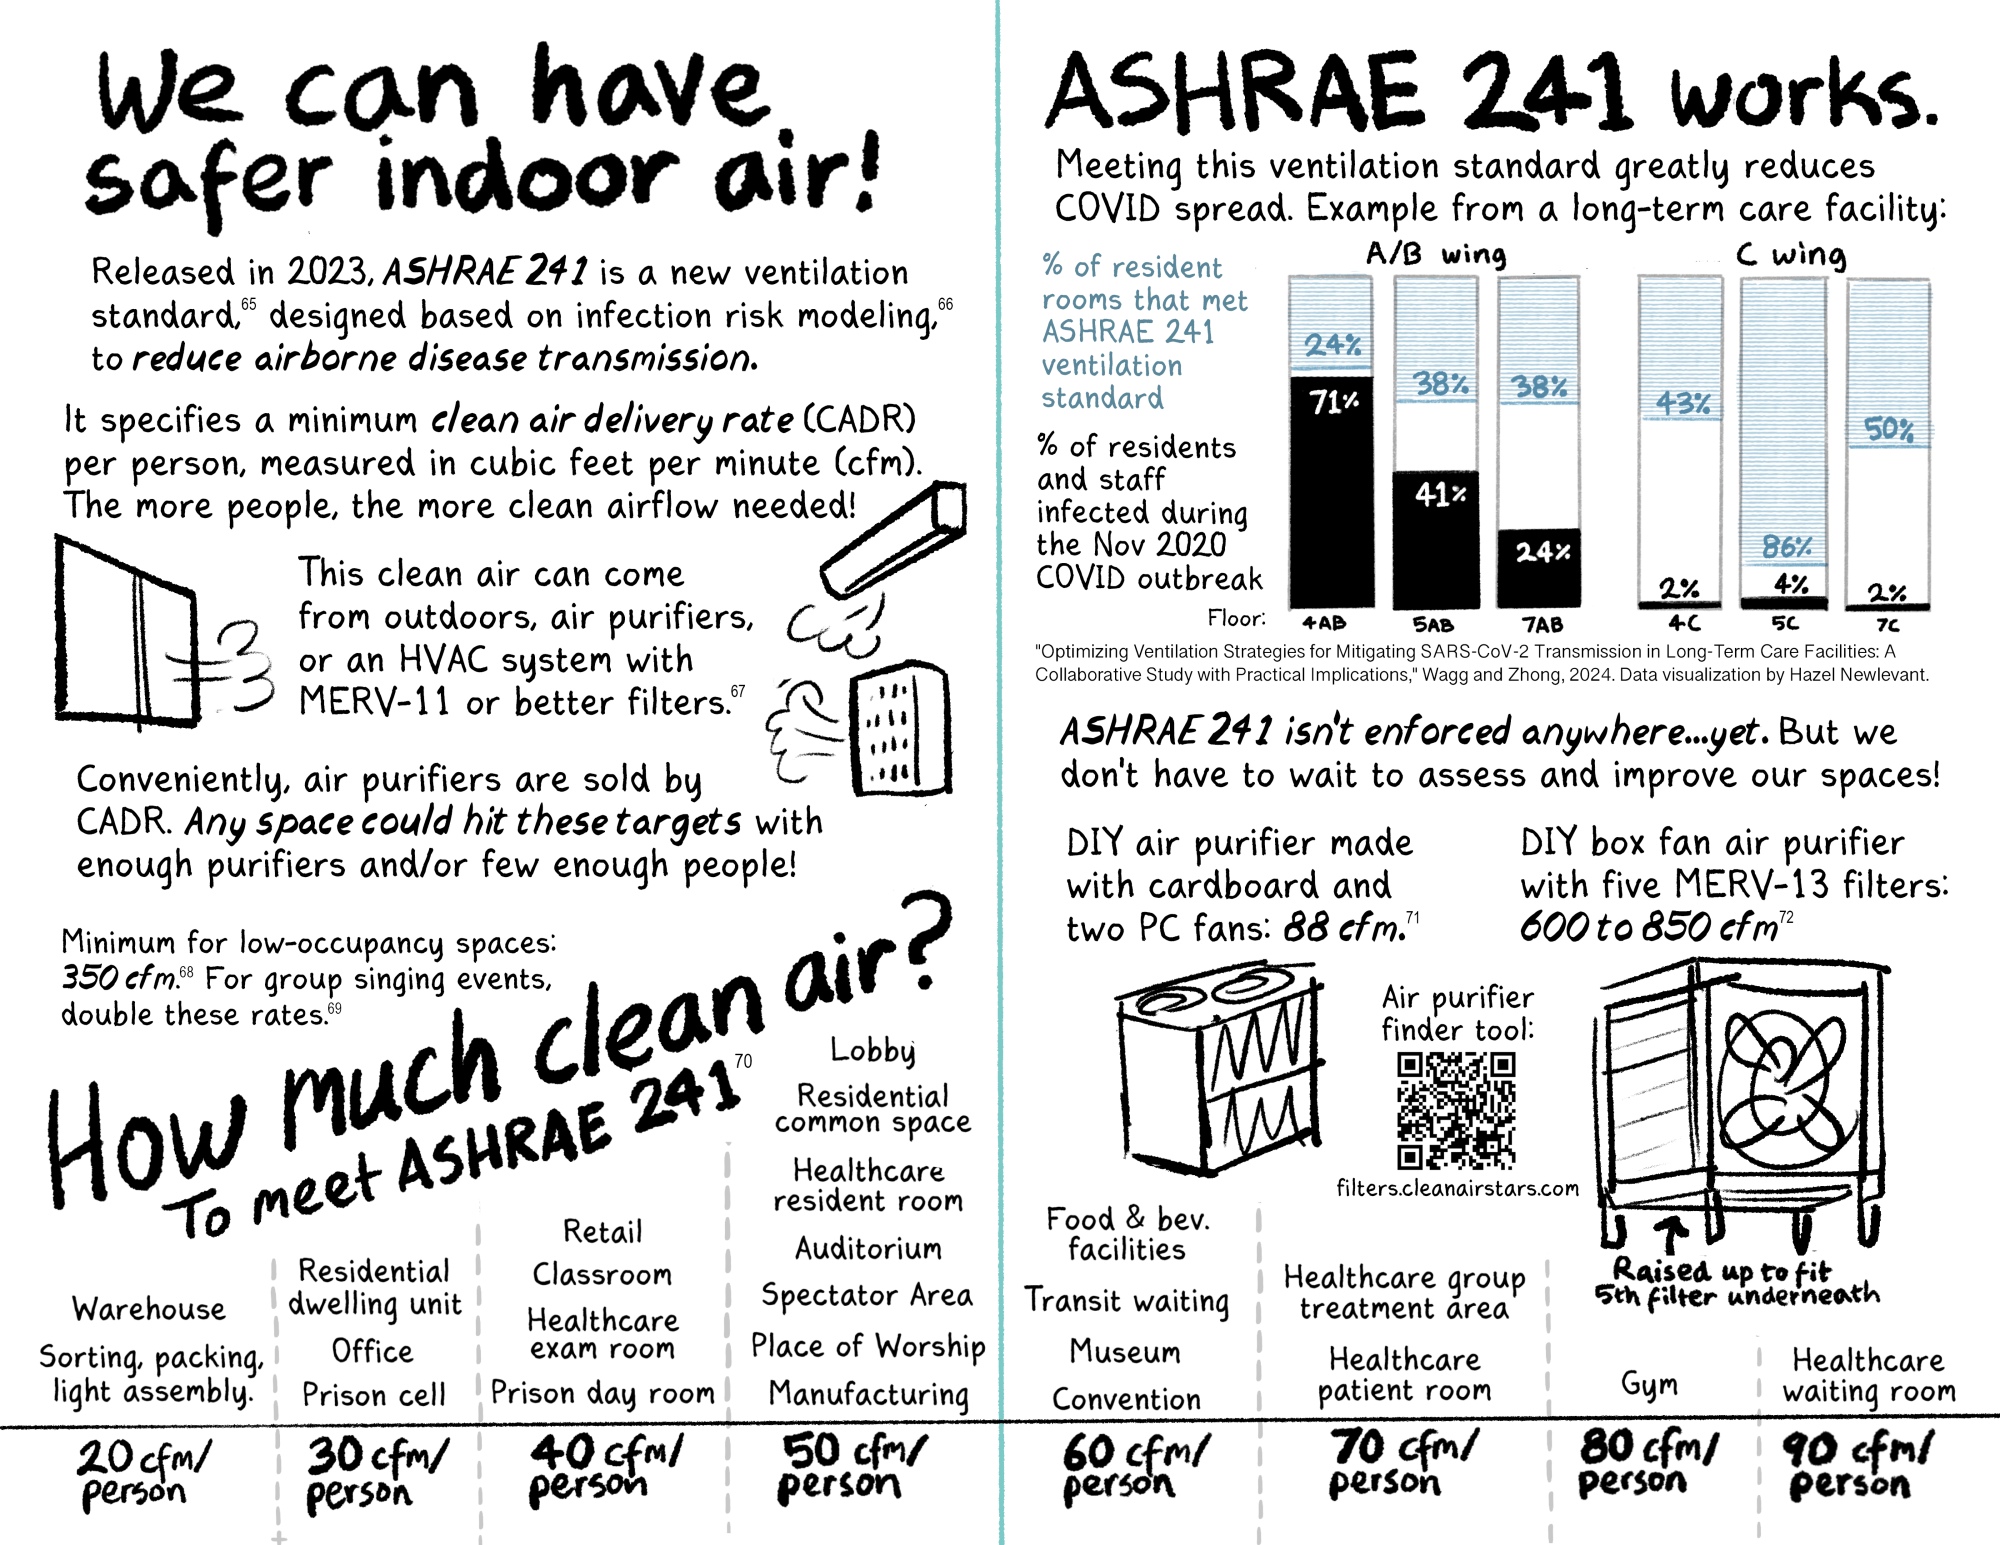 We can have
safer indoor air!
Released in 2023, ASHRAE 241 is a new ventilation
standard,65 designed based on infection risk modeling,66
to reduce airborne disease transmission.
It specifies a minimum clean air delivery rate (CADR)
per person, measured in cubic feet per minute (cfm).
The more people, the more clean airflow needed!
This clean air can come
from outdoors, air purifiers,
or an HVAC system with
MERV-11 or better filters.67
Conveniently, air purifiers are sold by
CADR. Any space could hit these targets with
enough purifiers and/or few enough people!
Minimum for low-occupancy spaces:
350 cfm.68 For group singing events,
double these rates.69
How much clean air?
To meet ASHRAE 241 70
Warehouse
Sorting, packing,
light assembly.
20 cfm/
person
Residential
dwelling unit
Office
Prison cell
30 cfm/
person
Retail
Classroom
Healthcare
exam room
Prison day room
40 cfm/
person
Lobby
Residential
common space
Healthcare
resident room
Auditorium
Spectator Area
Place of Worship
Manufacturing
50 cfm/
person
ASHRAE 241 works.
Meeting this ventilation standard greatly reduces
COVID spread. Example from a long-term care facility:
% of resident
rooms that met
ASHRAE 241
ventilation
standard
% of residents
and staff
infected during
the Nov 2020
COVID outbreak
A/B wing
C wing
24%
38%
38%
43%
50%
86%
71%
41%
24%
2%
4%
2%
Floor:
4AB
5AB
7AB
4C
5C
7C
"Optimizing Ventilation Strategies for Mitigating SARS-CoV-2 Transmission in Long-Term Care Facilities: A
Collaborative Study with Practical Implications," Wagg and Zhong, 2024. Data visualization by Hazel Newlevant.
ASHRAE 241 isn't enforced anywhere...yet. But we
don't have to wait to assess and improve our spaces!
DIY air purifier made
with cardboard and
two PC fans: 88 cfm.71
DIY box fan air purifier
with five MERV-13 filters:
600 to 850 cfm72
Air purifier
finder tool:
filters.cleanairstars.com
Raised up to fit
5th filter underneath
Food & bev.
facilities
Transit waiting
Museum
Convention
60 cfm/
person
Healthcare group
treatment area
Healthcare
patient room
70 cfm/
person
Gym
80 cfm/
person
Healthcare
waiting room
90 cfm/
person